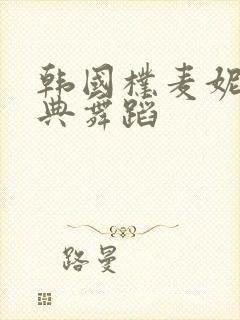 韩国朴麦妮
典舞蹈
路曼